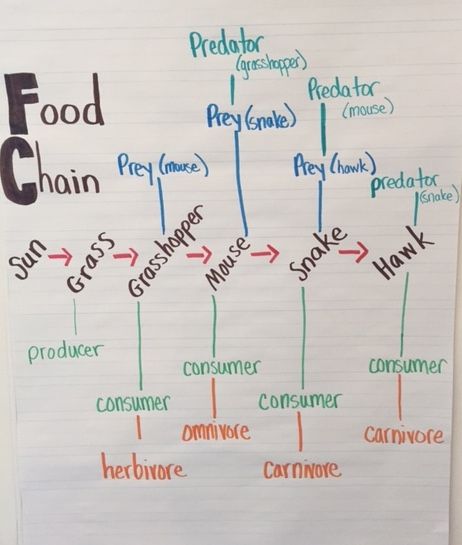 Food
Chain
Predator
(grasshopper)
Prey (snake)
Predator
(mouse)
Prey (mouse)
Prey (hawk)
predator
(snake)
Sun → Grass → Grasshopper → Mouse → Snake → Hawk
producer
consumer
herbivore
consumer
omnivore
consumer
carnivore
consumer
carnivore